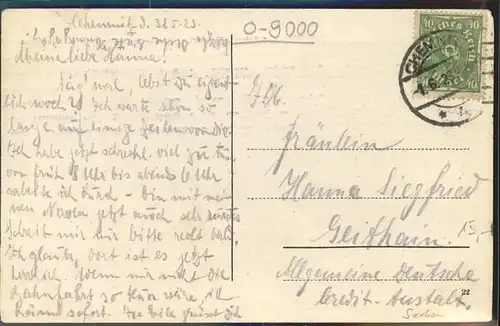 Chemnitz d. 31.5.23.
Meine liebe Hanna!
Sag' mal, lebst Du eigent-
lich noch? Ich warte schon so
lange auf einige Zeilen von Dir.
Ich habe jetzt schrecklich viel zu tun
von früh 8 Uhr bis abends 6 Uhr
arbeite ich durch - Bin mit mei-
nen Nerven jetzt auch sehr
Schreib mir nur bitte recht bald,
ich glaube, dort ist es jetzt
herrlich. Wenn nur nicht die
Bahnfahrt so teuer wäre, ich
käme sofort. In Eile grüsst Dich
0-9000
40 40
CHEMNITZ
1.6.23
Fräulein
Hanna Siegfried
Geithain.
15,-
Allgemeine Deutsche
Credit-Anstalt.
Sachsen
22